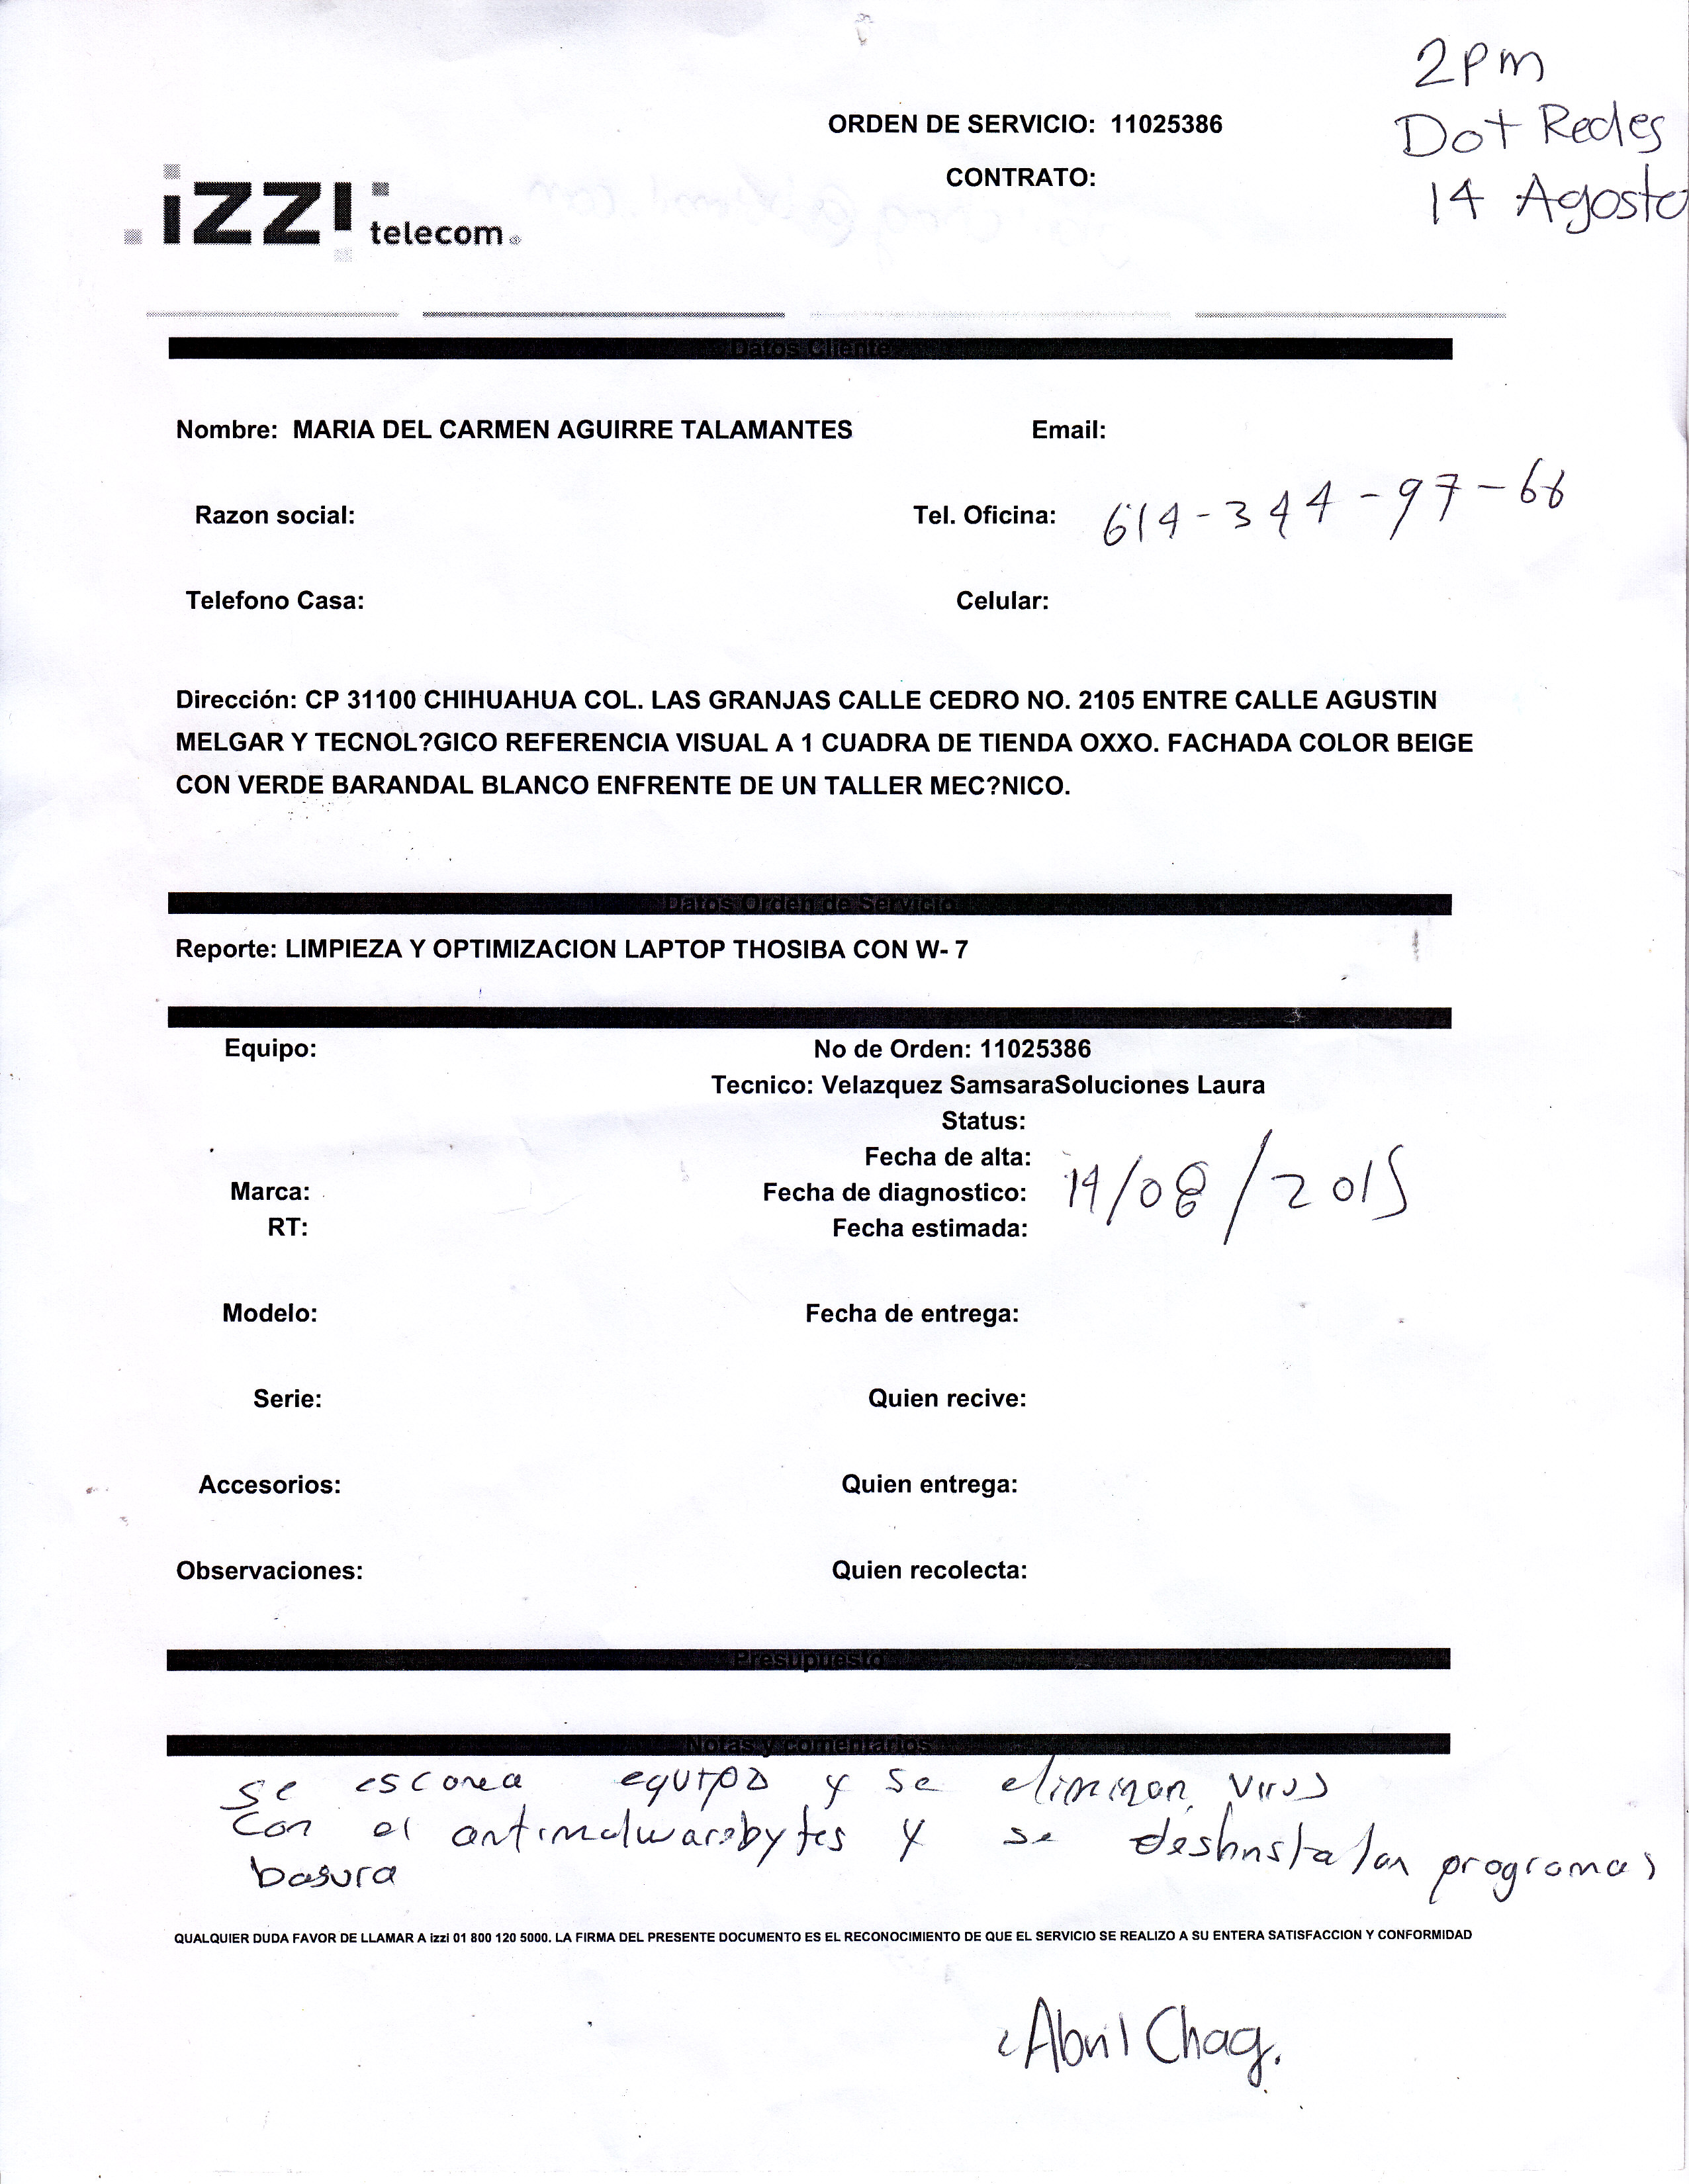 2pm
Dot Redes
14 Agosto
ORDEN DE SERVICIO: 11025386
CONTRATO:
izzi telecom
Datos Cliente
Nombre: MARIA DEL CARMEN AGUIRRE TALAMANTES Email:
Razon social: Tel. Oficina: 614-344-97-66
Telefono Casa: Celular:
Dirección: CP 31100 CHIHUAHUA COL. LAS GRANJAS CALLE CEDRO NO. 2105 ENTRE CALLE AGUSTIN
MELGAR Y TECNOL?GICO REFERENCIA VISUAL A 1 CUADRA DE TIENDA OXXO. FACHADA COLOR BEIGE
CON VERDE BARANDAL BLANCO ENFRENTE DE UN TALLER MEC?NICO.
Datos Orden de Servicio
Reporte: LIMPIEZA Y OPTIMIZACION LAPTOP THOSIBA CON W- 7
Equipo: No de Orden: 11025386
Tecnico: Velazquez SamsaraSoluciones Laura
Status:
Fecha de alta:
Marca: Fecha de diagnostico: 14/08/2015
RT: Fecha estimada:
Modelo: Fecha de entrega:
Serie: Quien recive:
Accesorios: Quien entrega:
Observaciones: Quien recolecta:
Presupuesto
Notas y comentarios
se escanea equipo y se eliminan virus
con el antimalwarebytes y se desinstalan programas
basura
QUALQUIER DUDA FAVOR DE LLAMAR A izzi 01 800 120 5000. LA FIRMA DEL PRESENTE DOCUMENTO ES EL RECONOCIMIENTO DE QUE EL SERVICIO SE REALIZO A SU ENTERA SATISFACCION Y CONFORMIDAD
Abril Chag.